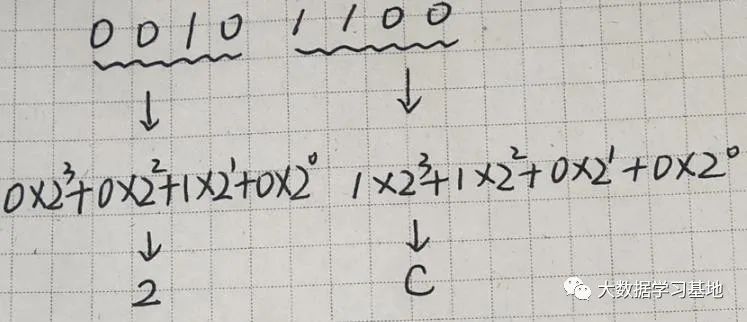 0010 1100
↓ ↓
0×2³+0×2²+1×2¹+0×2⁰ 1×2³+1×2²+0×2¹+0×2⁰
↓ ↓
2 C
大数据学习基地